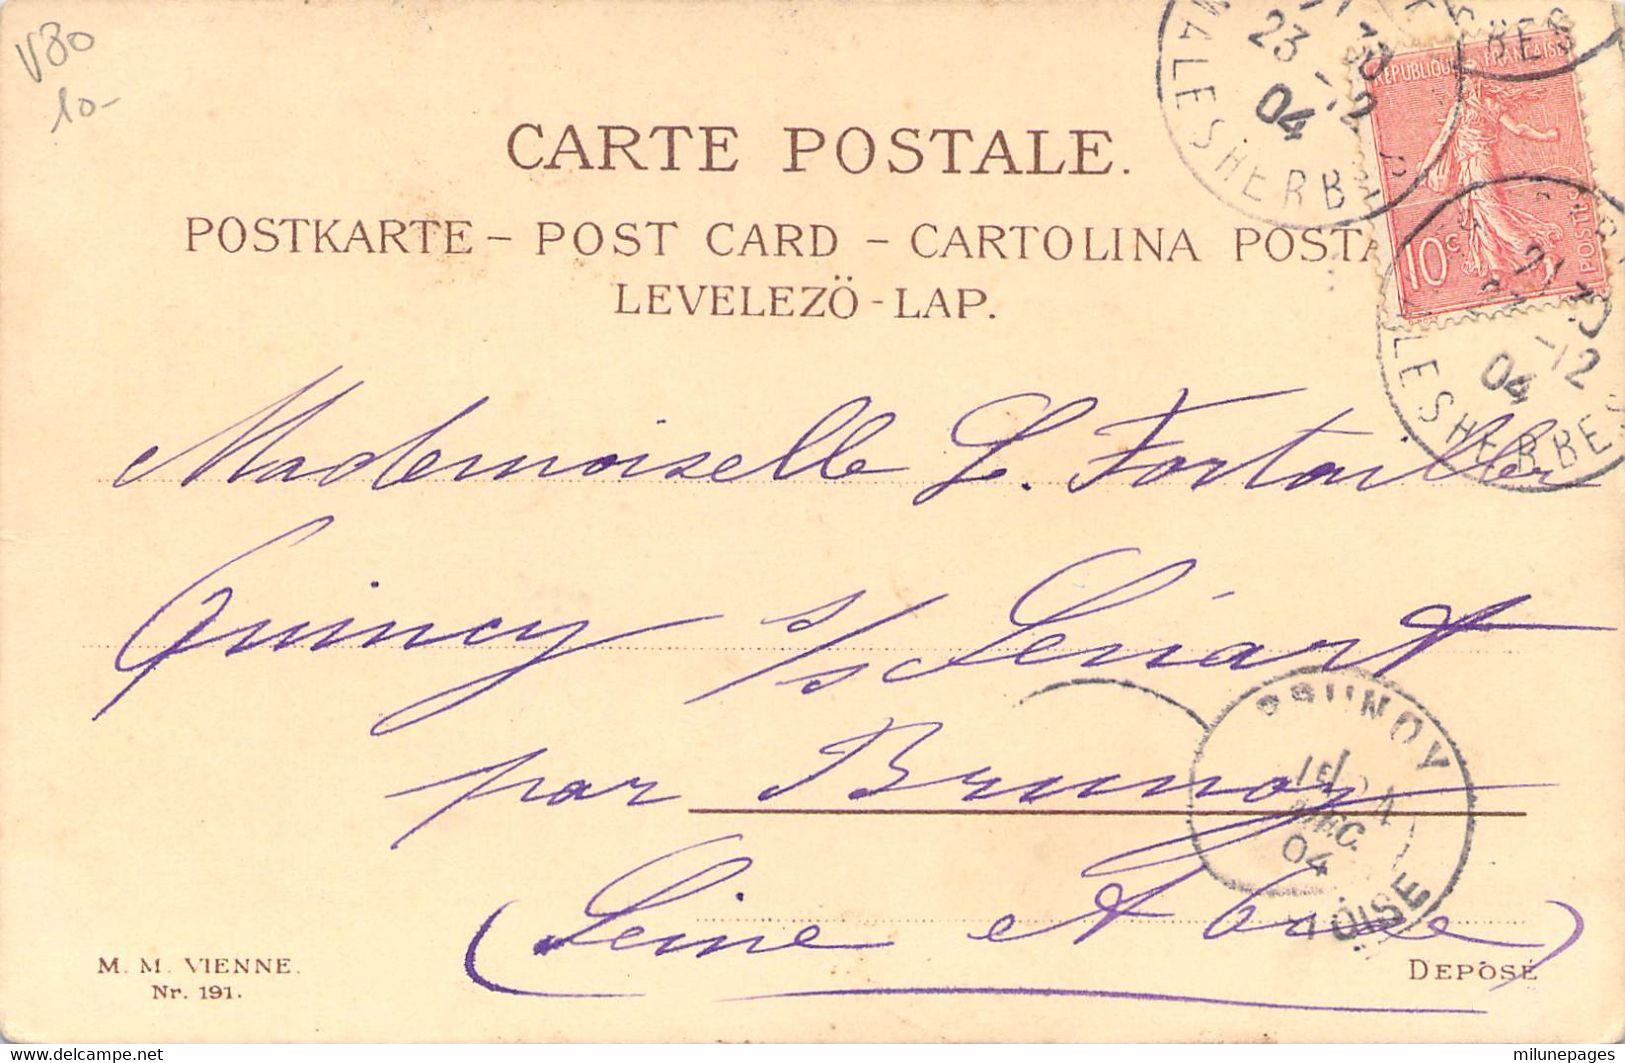 V80
10-
CARTE POSTALE.
POSTKARTE – POST CARD – CARTOLINA POSTA
LEVELEZÖ - LAP.
REPUBLIQUE FRANCAISE
10c POSTES
MALESHERBES
23 -12
04
MALESHERBES
-12
04
Mademoiselle L. Fortailler
Quincy s/s Sénart
par Brunoy
(Seine et Oise)
BRUNOY
DEC.
04
OISE
M. M. VIENNE.
Nr. 191.
DEPOSÉ
www.delcampe.net
milunepages